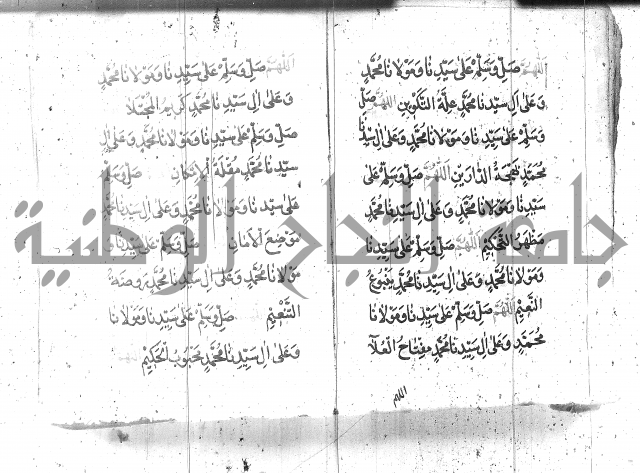 اللهم صل وسلم على سيدنا ومولانا محمد
وعلى ال سيدنا محمد علة التكوين اللهم صل
وسلم على سيدنا ومولانا محمد وعلى ال سيدنا
محمد بهجة الدارين اللهم صل وسلم على
سيدنا ومولانا محمد وعلى ال سيدنا محمد
مظهر التحكيم اللهم صل وسلم على سيدنا
ومولانا محمد وعلى ال سيدنا محمد ينبوع
النعيم اللهم صل وسلم على سيدنا ومولانا
محمد وعلى ال سيدنا محمد مفتاح العلا
اللهم
اللهم صل وسلم على سيدنا ومولانا محمد
وعلى ال سيدنا محمد كريم
صل وسلم على سيدنا ومولانا محمد وعلى ال
سيدنا محمد مقلة الاعيان صل وسلم
على سيدنا ومولانا محمد وعلى ال سيدنا محمد
موضع الامان صل وسلم على سيدنا و
مولانا محمد وعلى ال سيدنا محمد روضة
التنعيم صل وسلم على سيدنا ومولانا
وعلى ال سيدنا محمد محبوب الحكيم
جامعة النجاح الوطنية